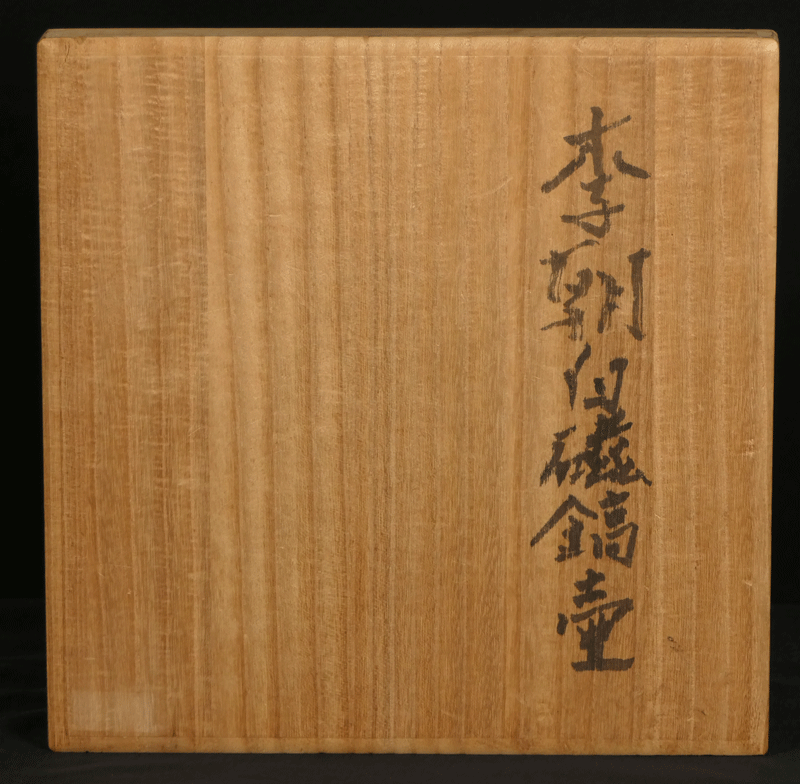 李朝白磁鎬壷